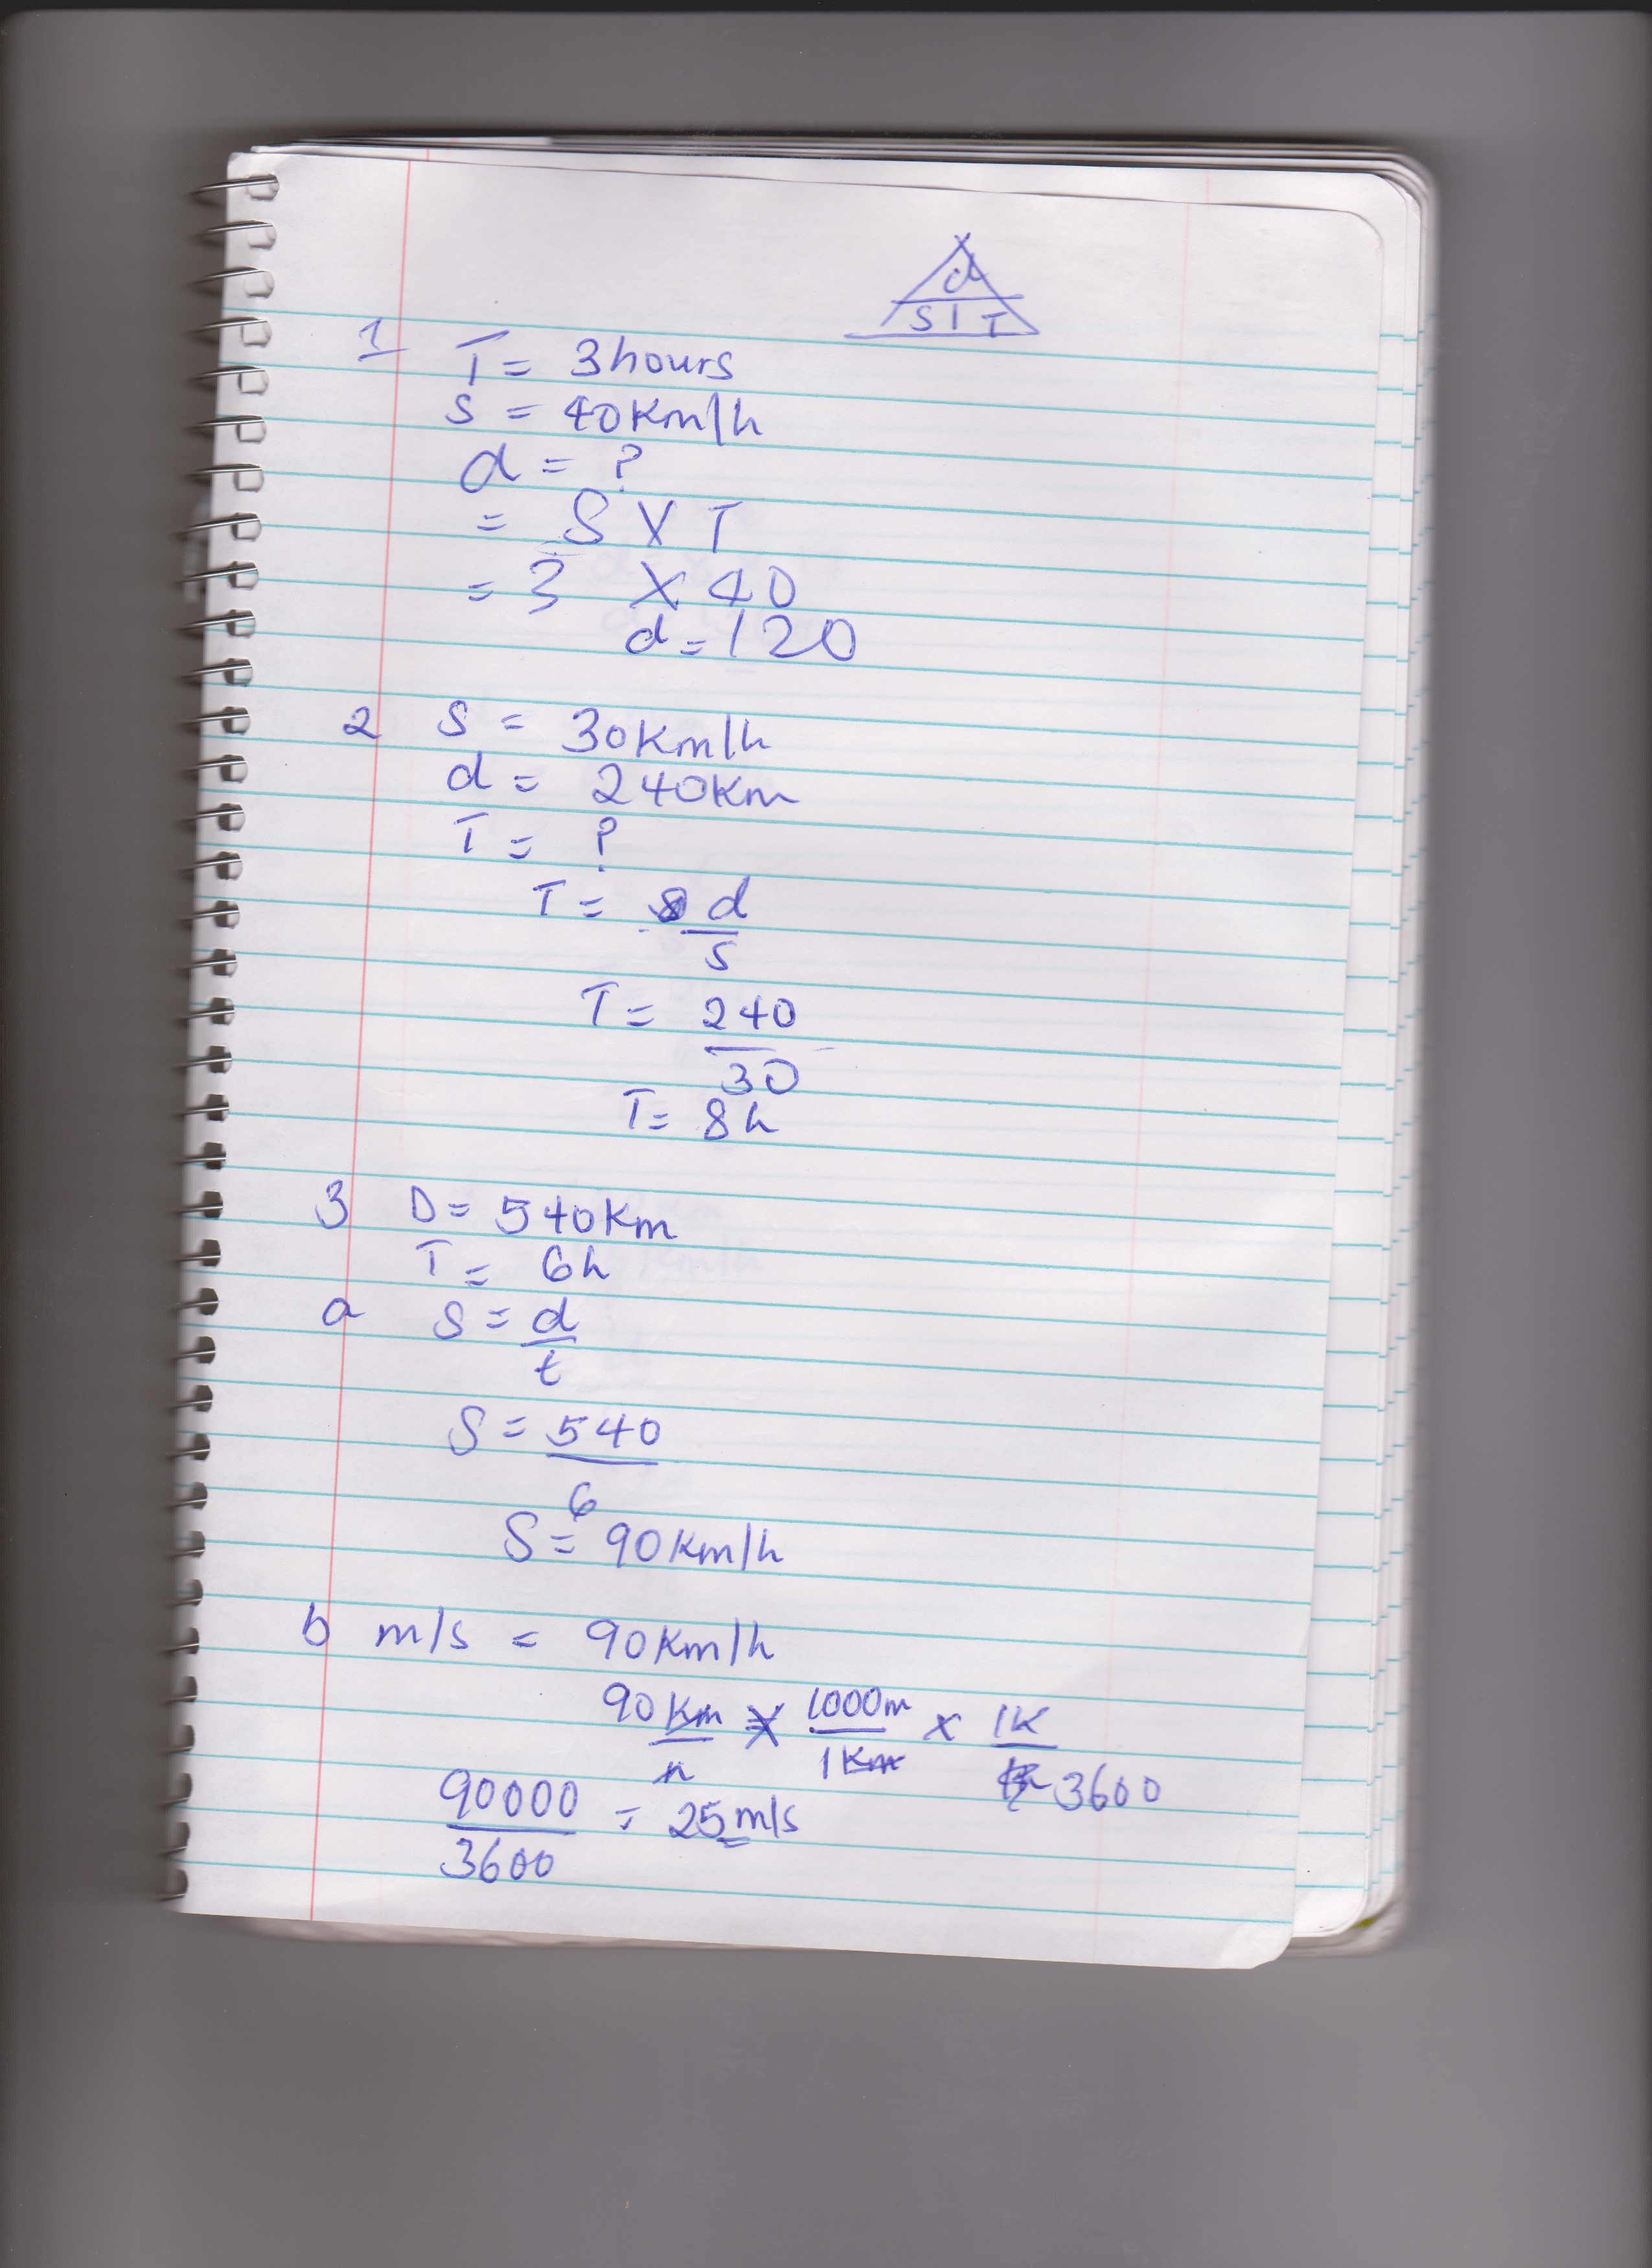 d
S | T
1 T = 3hours
S = 40Km/h
d = ?
= S X T
= 3 X 40
d = 120
2 S = 30Km/h
d = 240Km
T = ?
T = d
s
T = 240
30
T = 8h
3 D = 540Km
T = 6h
a S = d
t
S = 540
6
S = 90Km/h
b m/s = 90Km/h
90 Km X 1000m x 1K
h 1Km 3600
90000 = 25m/s
3600